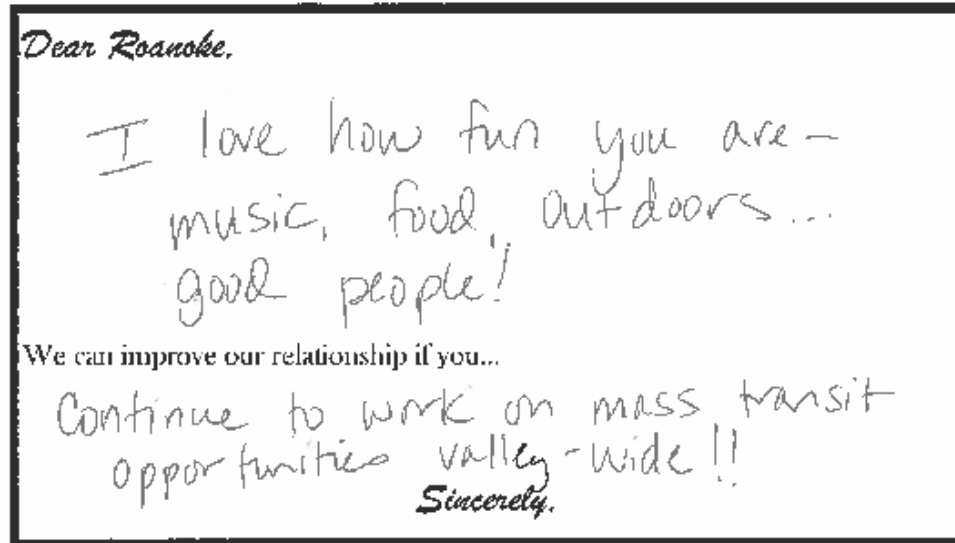 Dear Roanoke,
I love how fun you are -
music, food, outdoors...
good people!
We can improve our relationship if you...
Continue to work on mass transit
opportunities valley-wide!!
Sincerely,